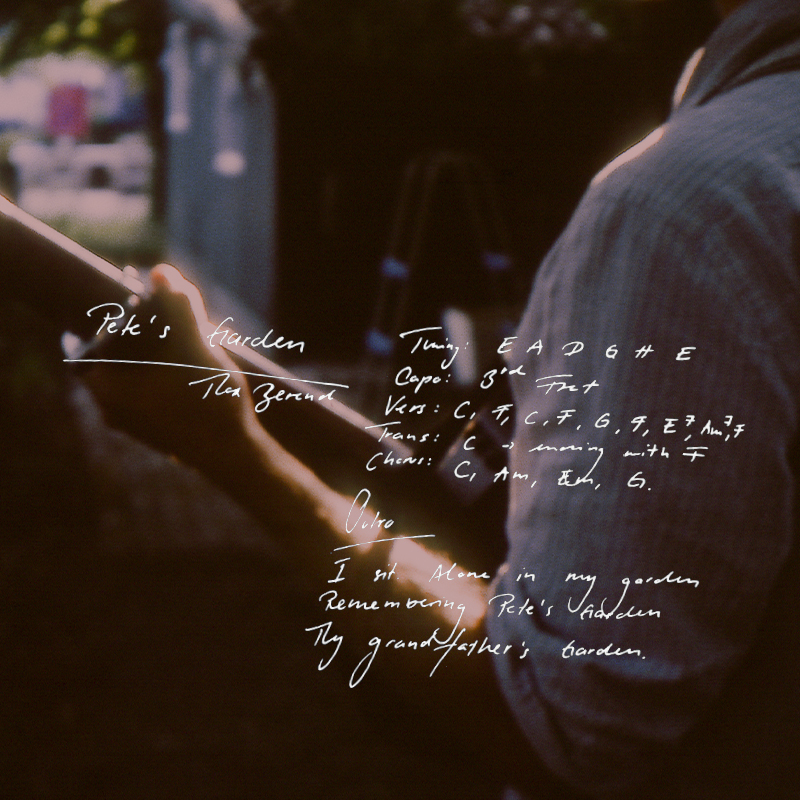 Pete's Garden
Max Berend
Tuning: E A D G H E
Capo: 3rd Fret
Vers: C, F, C, F, G, F, E7, Am7, F
Trans: C -> moving with F
Chorus: C, Am, Em, G.
Outro
I sit. Alone in my garden
Remembering Pete's Garden
My grandfather's Garden.